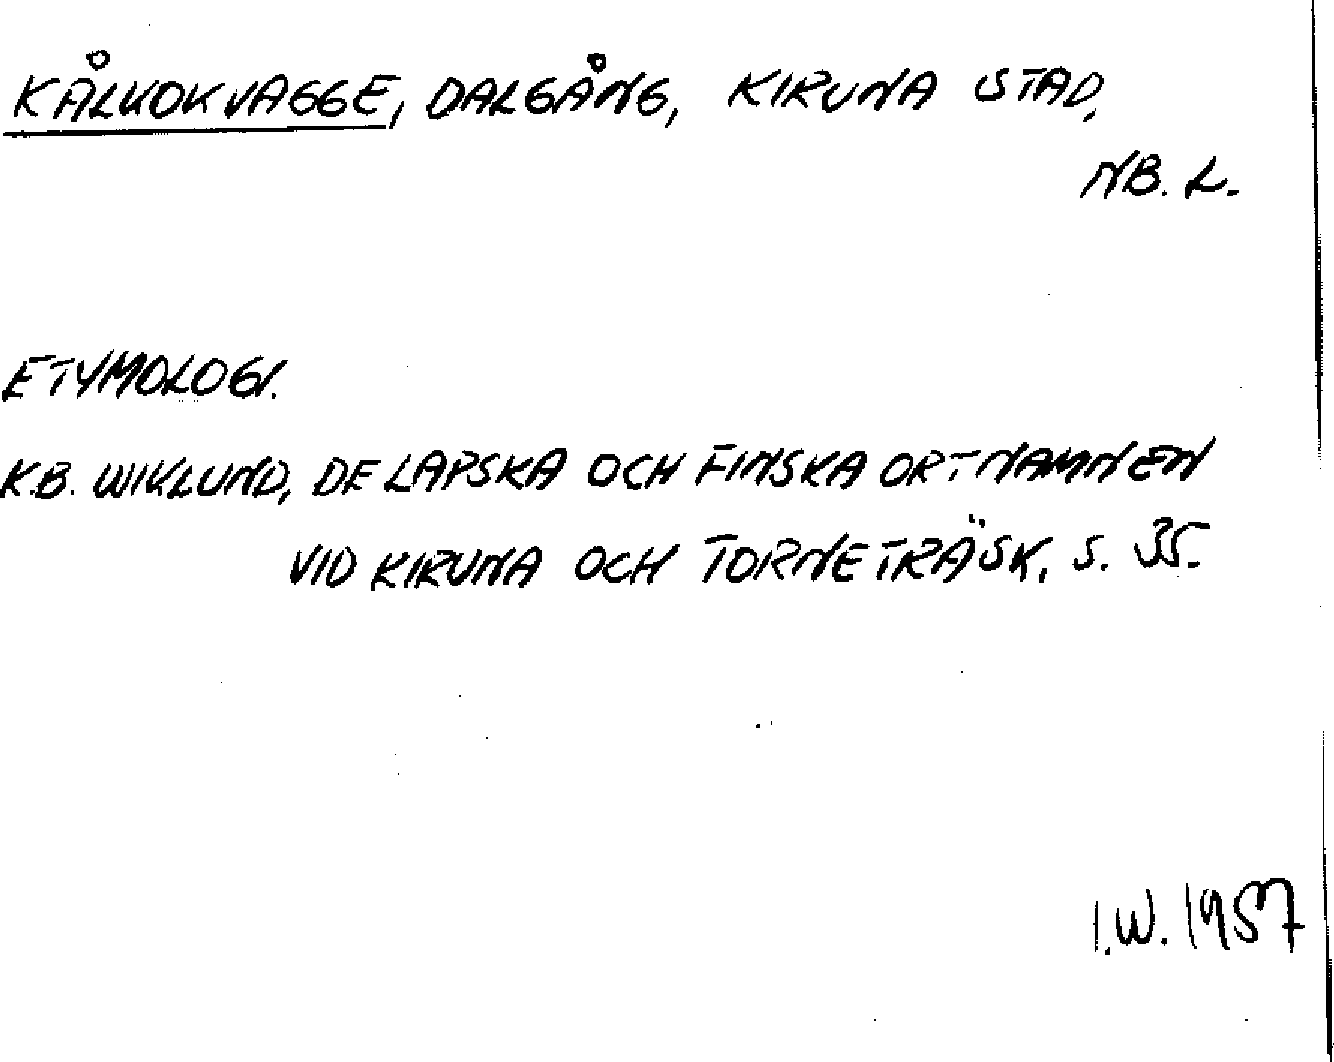 KÅLKOKVAGGE, DALGÅNG, KIRUNA STAD,
NB. L.
ETYMOLOGI.
K.B. WIKLUND, DE LAPSKA OCH FINSKA ORTNAMNEN
VID KIRUNA OCH TORNETRÄSK, S. 35.
I.W. 1957